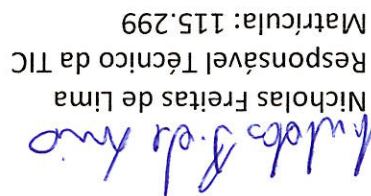 Nicholas F. de Lima
Nicholas Freitas de Lima
Responsável Técnico da TIC
Matrícula: 115.299